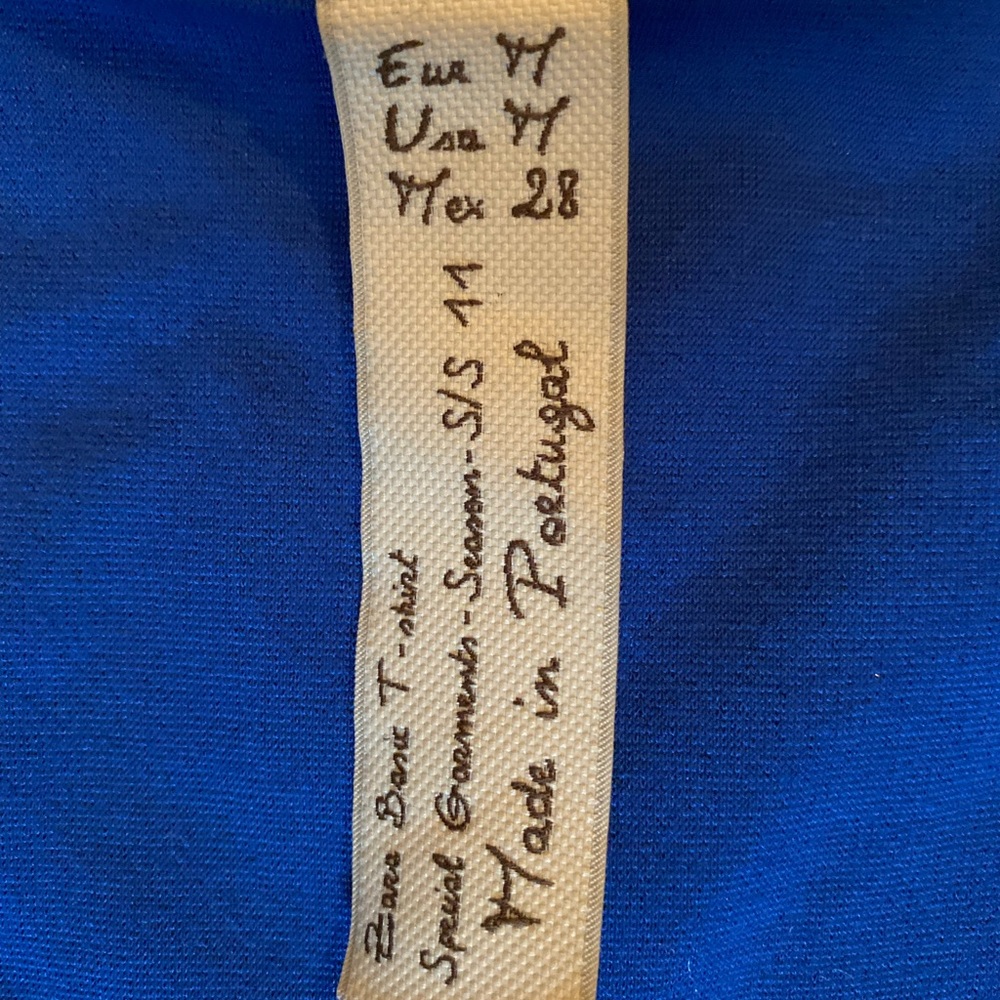 Eur M
Usa M
Mex 28
Zara Basic T-shirt
Special Garments-Season-S/S 11
Made in Portugal